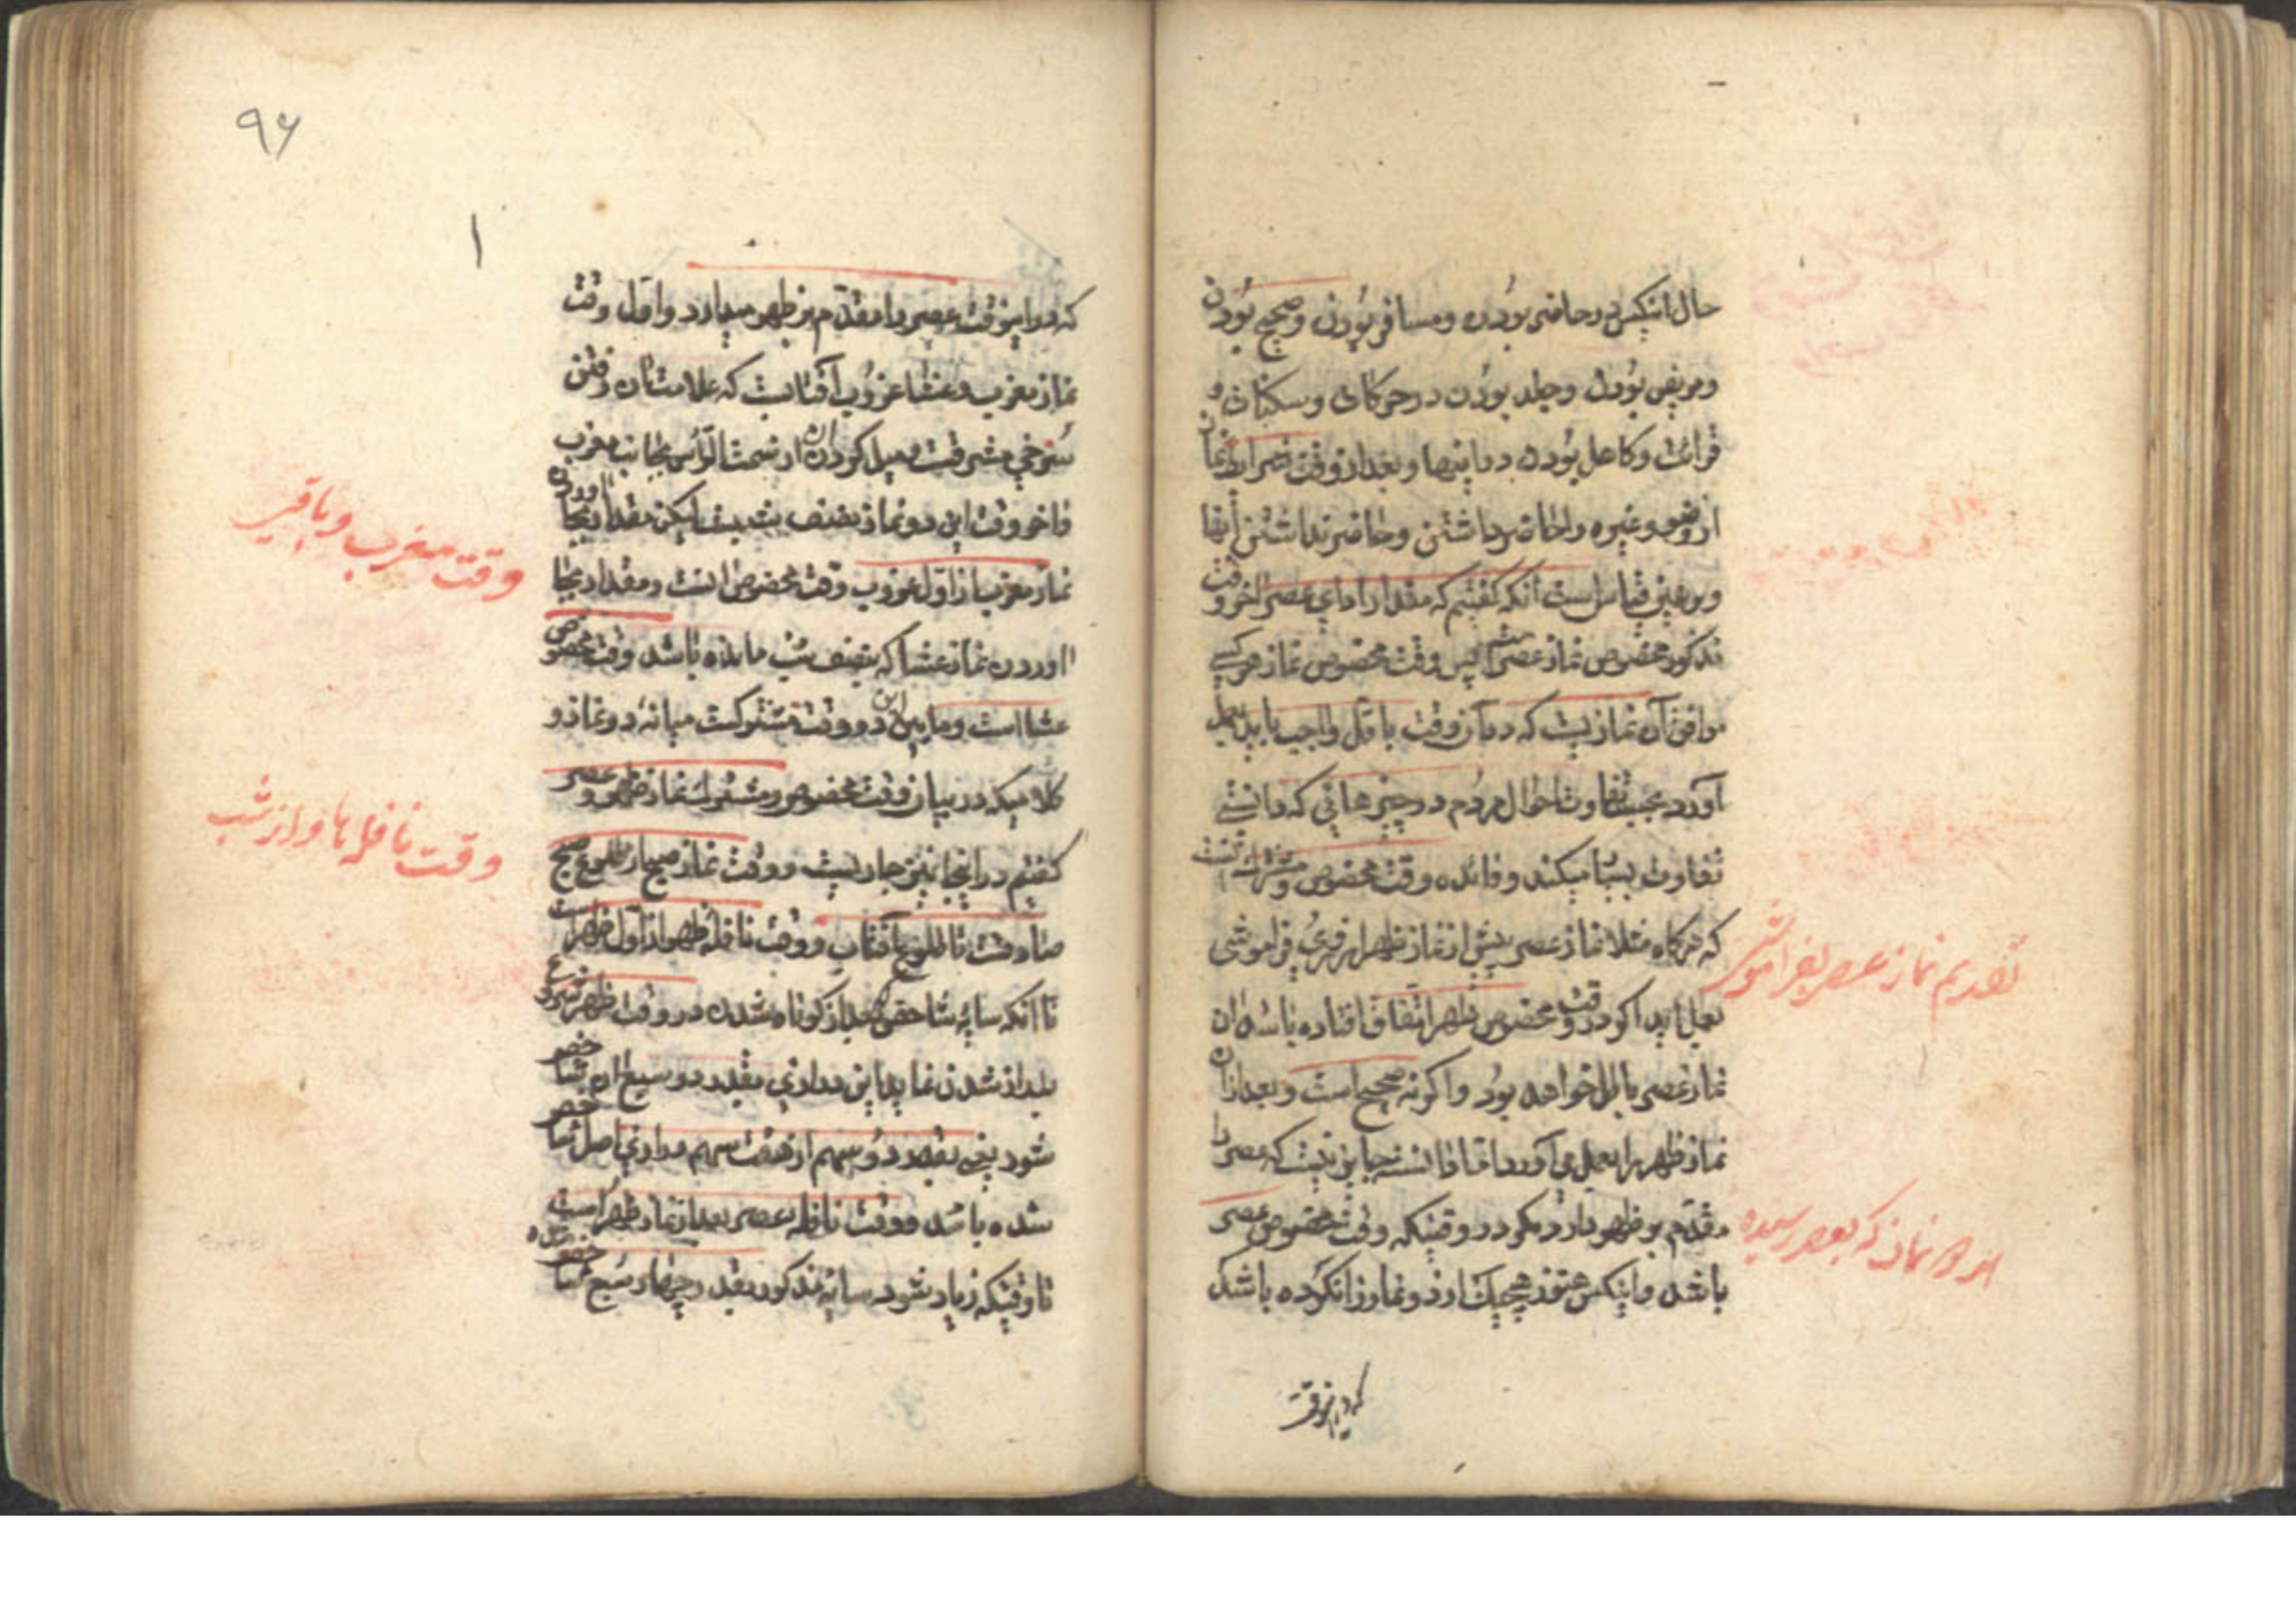 حال انکس در حاضر بودن و مسافر بودن و صحیح بودن
و مریض بودن و جلد بودن در حرکات و سکنات و
قرائت و کاهل بودن در اینها و بعد از وقت شرایط نماز
از وضو و غیره را حاضر داشتن و حاضر نداشتن اینها
و بر همین قیاس است آنکه گفتیم که مقدار ادای عصر اخر وقت
مذکور مخصوص نماز عصر است پس وقت مخصوص نماز هر کسی
موافق آن نمازیست که در آن وقت باقل واجب باید بعمل
آورد بحسب تفاوت احوال مردم در چیزهائی که دانستی
تفاوت بسیار میکند و فائده وقت مخصوص و مشترک آنست
که هرگاه مثلا نماز عصر پیش از نماز ظهر از روی فراموشی
بعمل اید اگر در وقت مخصوص ظهر اتفاق افتاده باشد ان
نماز عصر باطل خواهد بود و اگر نه صحیح است و بعد از ان
نماز ظهر را بعمل می آورد اما دانسته جایز نیست که عصر را
مقدم بر ظهر دارد مگر در وقتیکه وقت مخصوص عصر
باشد و اینکس هنوز هیچیک از دو نماز را نکرده باشد
تقدیم نماز عصر بفراموشی
نماز که بعصر رسیده
که در اینوقت
۹۶
۱
که در اینوقت عصر را مقدم بر ظهر میدارد و اول وقت
نماز مغرب و عشا غروب آفتابست که علامت آن رفتن
سرخی مشرقست و میل کردن ان از سمت الرأس بجانب مغرب
و اخر وقت این دو نماز نصف شبست لیکن مقدار بجا اوردن
نماز مغرب از اول غروب وقت مخصوص انست و مقدار بجا
اوردن نماز عشا که بنصف شب مانده باشد وقت مخصوص
عشا است و ما بین این دو وقت مشترکست میانه دو نماز و
کلامیکه در بیان وقت مخصوص و مشترک نماز ظهر و عصر
گفتیم در اینجا نیز جاریست و وقت نماز صبح از طلوع صبح
صادقست تا طلوع آفتاب و وقت نافله ظهر از اول ظهر است
تا انکه سایه شاخص بعد از کوتاه شدن در وقت ظهر شروع
ببلند شدن نماید این درازی بقدر دو سبع ان شاخص
شود یعنی بقدر دو سهم از هفت سهم درازی اصل شاخص
شده باشد و وقت نافله عصر بعد از نماز ظهر است
تا وقتیکه زیاد شود سایه مذکور بقدر چهار سبع شاخص
وقت مغرب و باقی
وقت نافلها و از شب